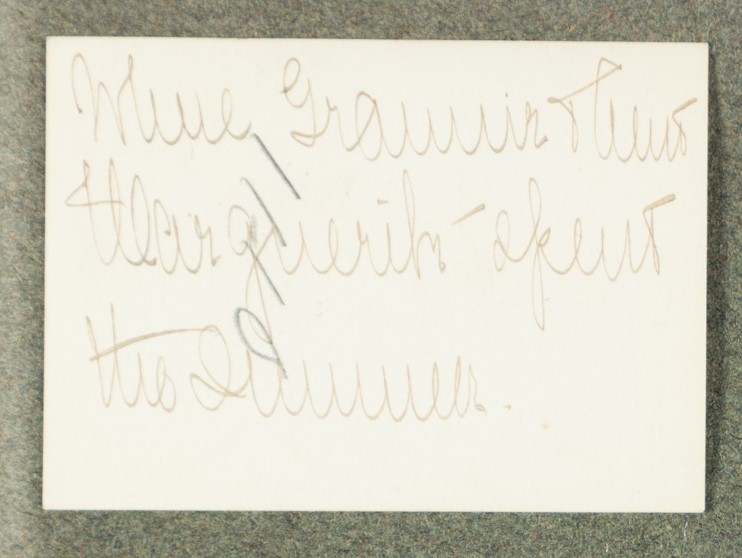 Where Grannie & Aunt
Marguerite spent
the Summer.